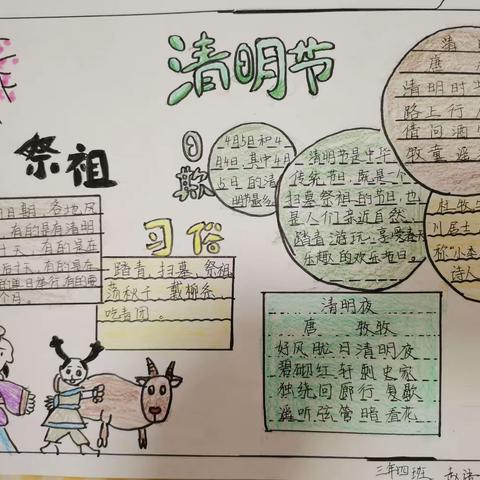 清明节
祭祖
日期,各地风
有的是有清明
十天,有的是在
后十天,有的在
个月。
习俗
踏青、扫墓、祭祖
荡秋千、戴柳条
吃青团。
日
期
4月5日和4
月4日,其中4月
5日的清
明节最多。
清明节是中华
传统节日,既是一个
扫墓祭祖的节日,也
是人们亲近自然
踏青游玩、享受春天
乐趣的欢乐节日。
清
唐
清明时
路上行人
借问酒
牧童遥
杜牧
川居士
称"小杜
诗人
清明夜
唐 牧牧
好风胧日清明夜
碧砌红轩刺史家
独绕回廊行复歇
遥听弦管暗看花
三年四班